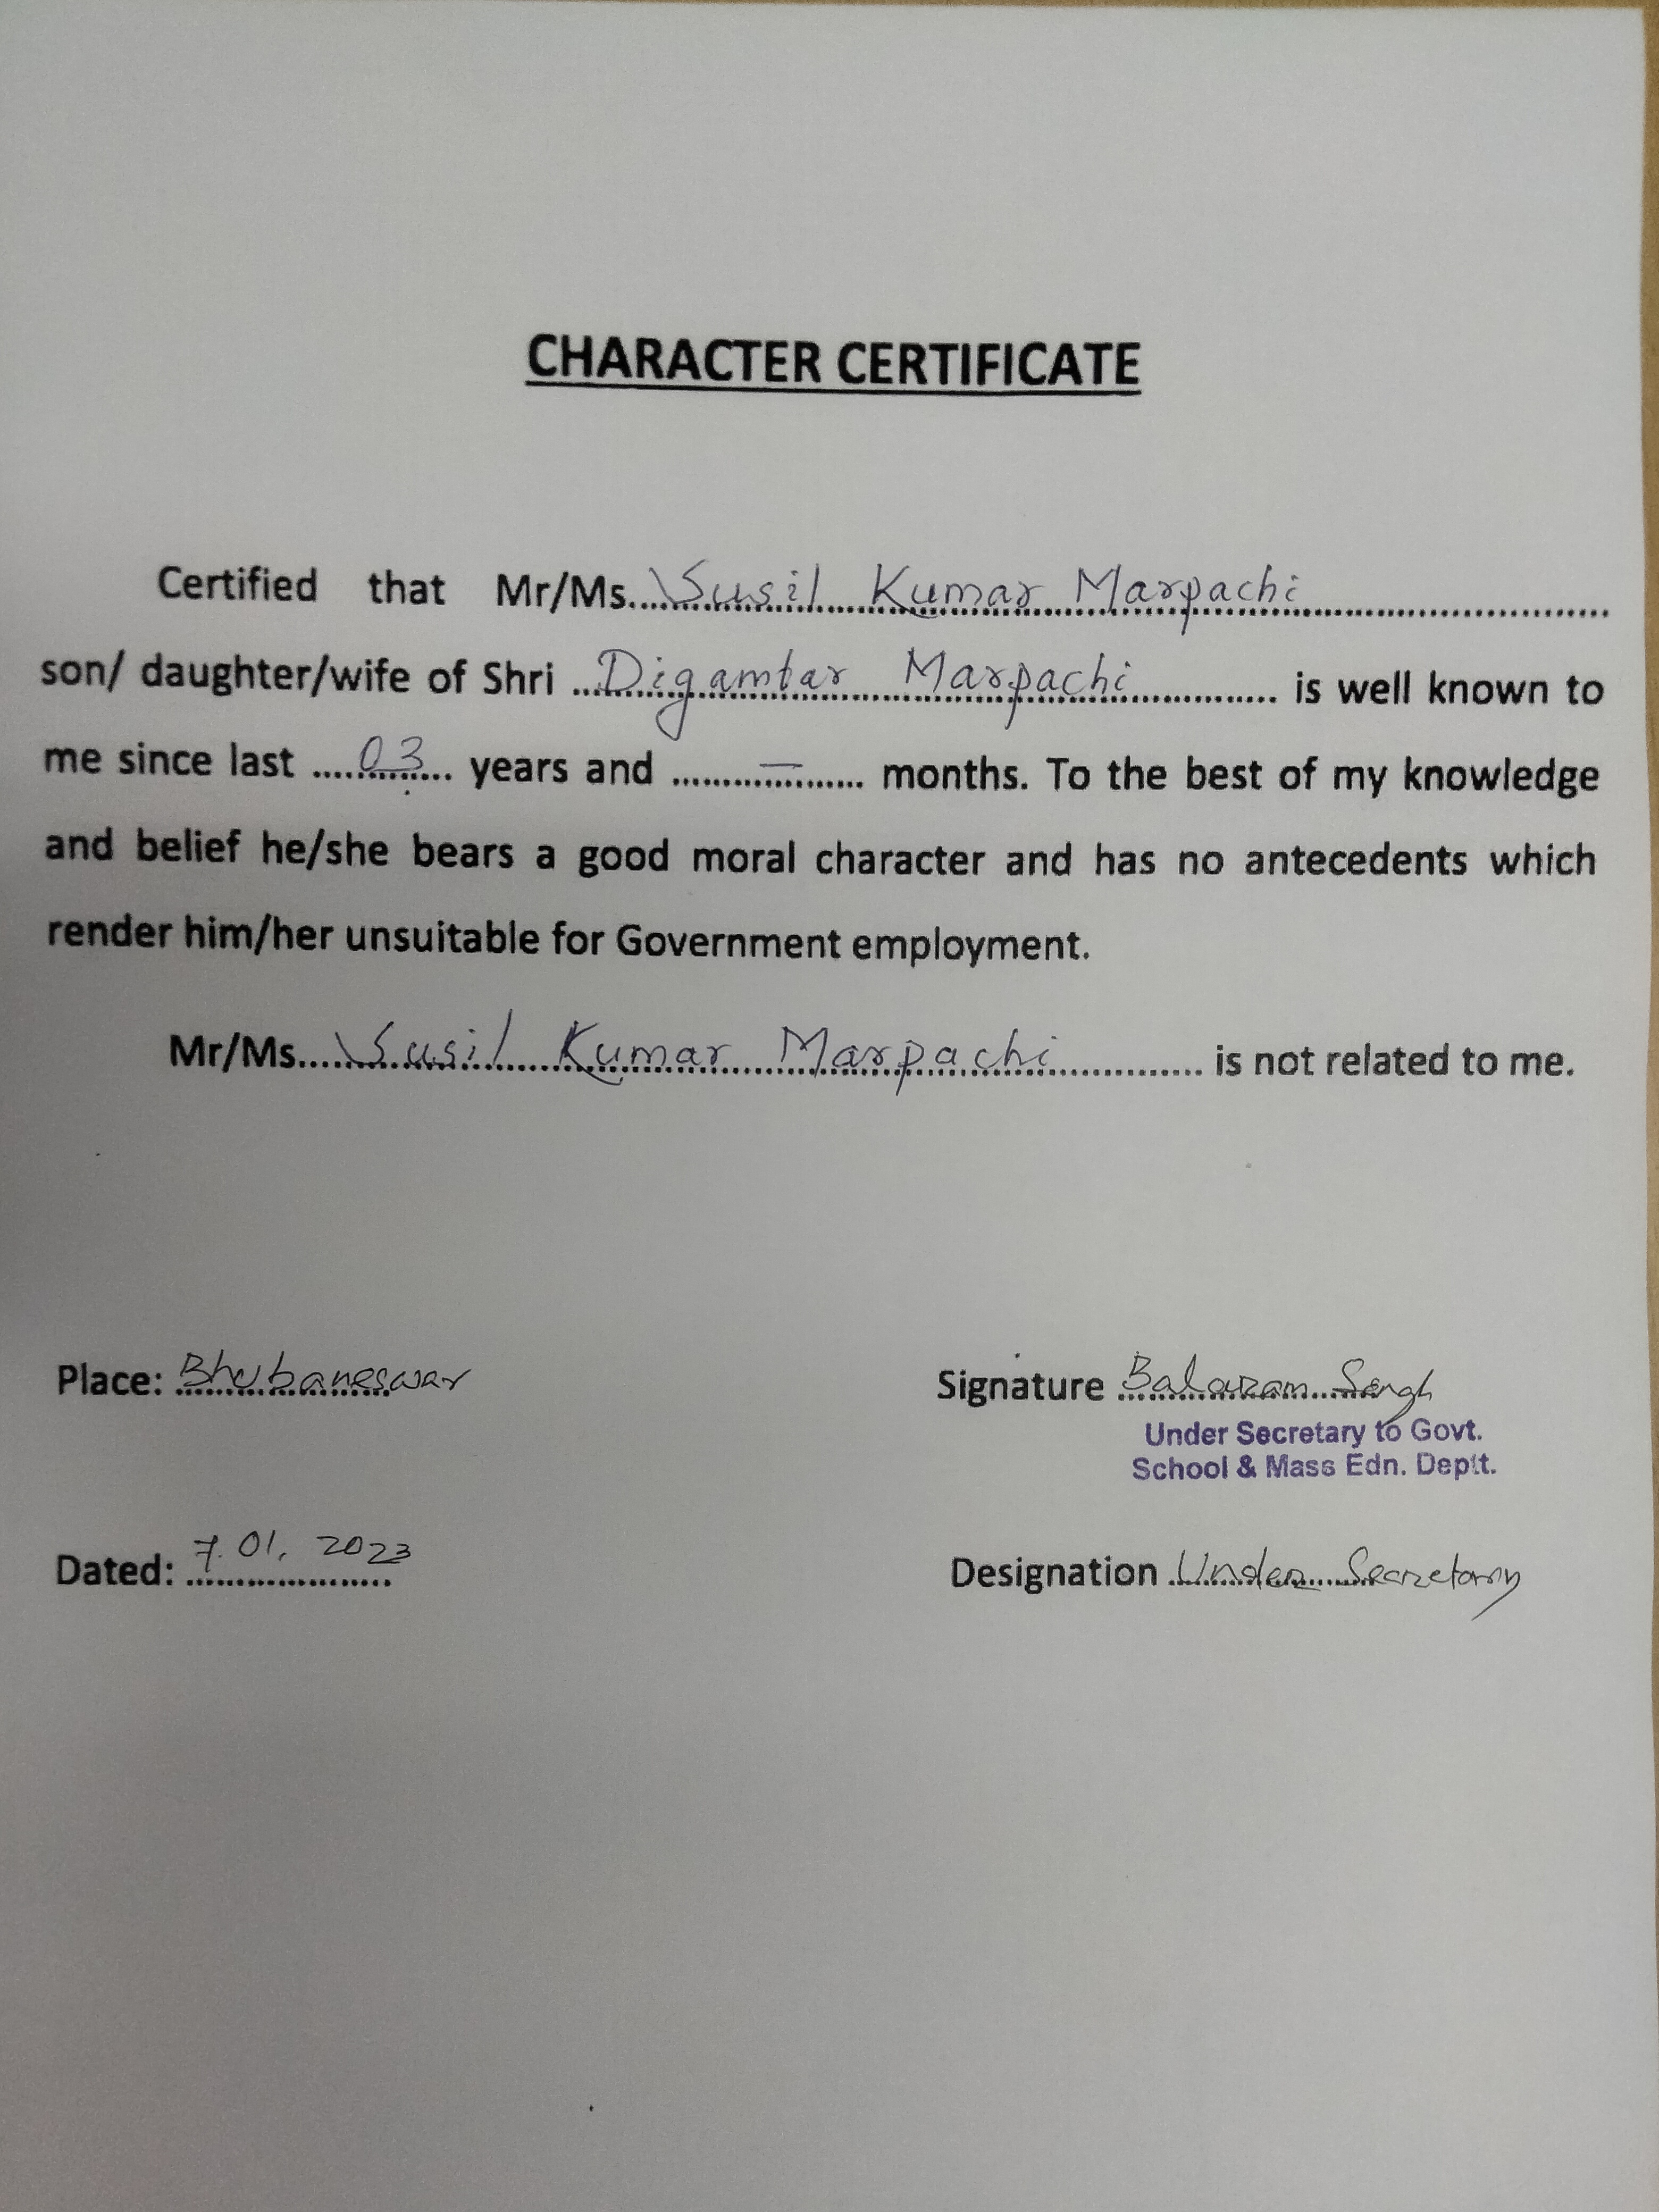 CHARACTER CERTIFICATE
Certified that Mr/Ms....Susil Kumar Marpachi....................
son/ daughter/wife of Shri ....Digambar Marpachi.............. is well known to
me since last .....03..... years and .........—......... months. To the best of my knowledge
and belief he/she bears a good moral character and has no antecedents which
render him/her unsuitable for Government employment.
Mr/Ms....Susil Kumar Marpachi............... is not related to me.
Place: Bhubaneswar
Signature Balaram Singh
Under Secretary to Govt.
School & Mass Edn. Deptt.
Dated: 7.01. 2023
Designation Under Secretary